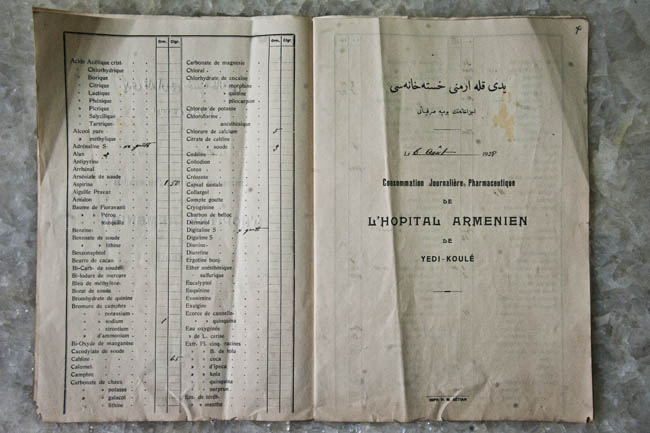 Grm. Ctgr.
Acide Acétique crist.
» Chlorhydrique
» Borique
» Citrique
» Lactique
» Phénique
» Picrique
» Salycilique
» Tartrique
Alcool pure
» méthylique
Adrénaline S
Alun
Antipyrine
Arrhénal
Arséniate de soude
Aspirine 1 50
Aiguille Pravaz
Amidon
Baume de Fioravanti
» » Pérou
» tranquille
Benzine
Benzoate de soude
» » lithine
Benzonaphtol
Beurre de cacao
Bi-Carb. de soude
Bi-Iodure de mercure
Bleu de méthylène
Borat de soude
Bromhydrate de quinine
Bromure de camphre
» » potassium
» » sodium 1
» » strontium
» » d'ammonium
Bi-Oxyde de manganèse
Cacodylate de soude
Caféine 65
Calomel
Camphre
Carbonate de chaux
» » potasse
» » galacol
» » lithine
Grm. Ctgr.
Carbonate de magnesie
Chloral
Chlorhydrate de cocaïne
» » morphine
» » quinine
» » pilocarpine
Chlorate de potasse
Chloroforme
» anésthésique
Chlorure de calcium 5
Citrate de caféine
» » soude
Codéine
Collodion
Cotoa
Créosote
Capsul santale
Collargol
Compte goutte
Cryogénine
Charbon de belloc
Dermatol
Digitaline S
Digaline S
Dionine
Diuretine
Ergotine bonj.
Ether anésthésique
» sulfurique
Eucalyptol
Euquinine
Evonimine
Exalgine
Ecorce de cannelle
» » quinquina
Eau oxyginée
» de L. cerise
Extr. Fl. cinq. racines
» » B. de hola
» » coca
» » d'ipeca
» » kola
» » quinquina
» » serpren.
» » menthe
یدی قله ارمنی خسته‌خانه‌سی
اجزاخانه‌نك یومیه صرفیاتی
Le 6 Août 1928
Consommation Journalière Pharmaceutique
DE
L'HOPITAL ARMENIEN
DE
YEDI-KOULÉ